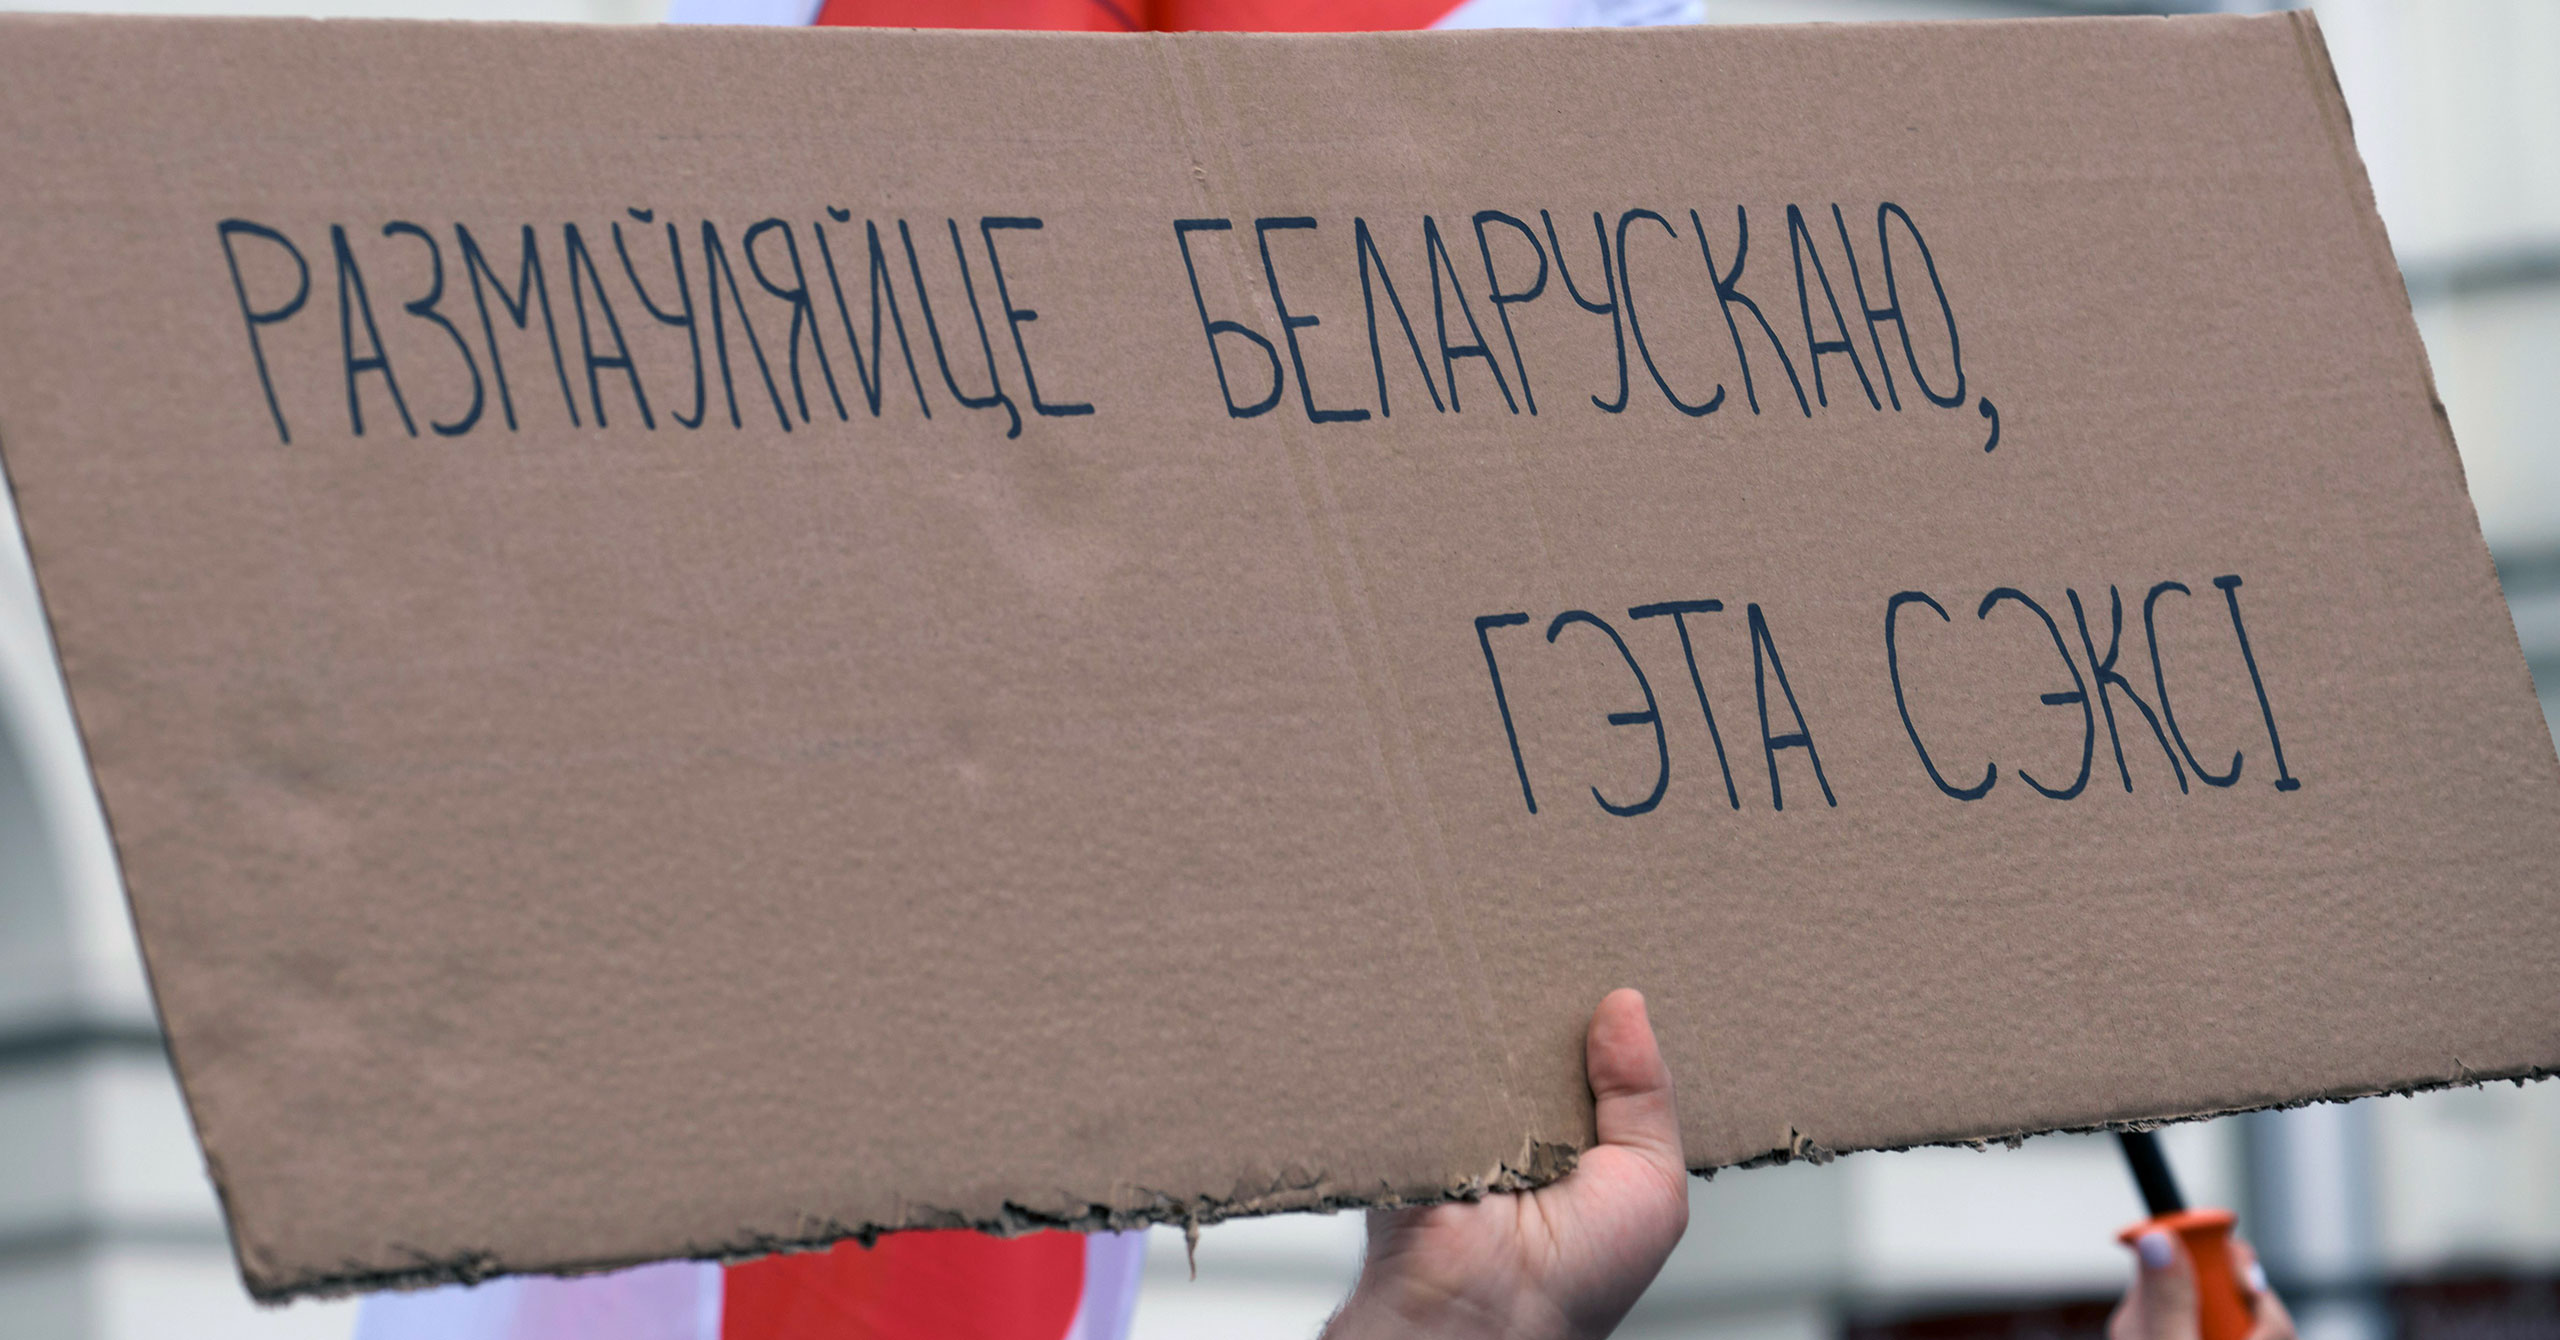 РАЗМАЎЛЯЙЦЕ БЕЛАРУСКАЮ,
ГЭТА СЭКСІ